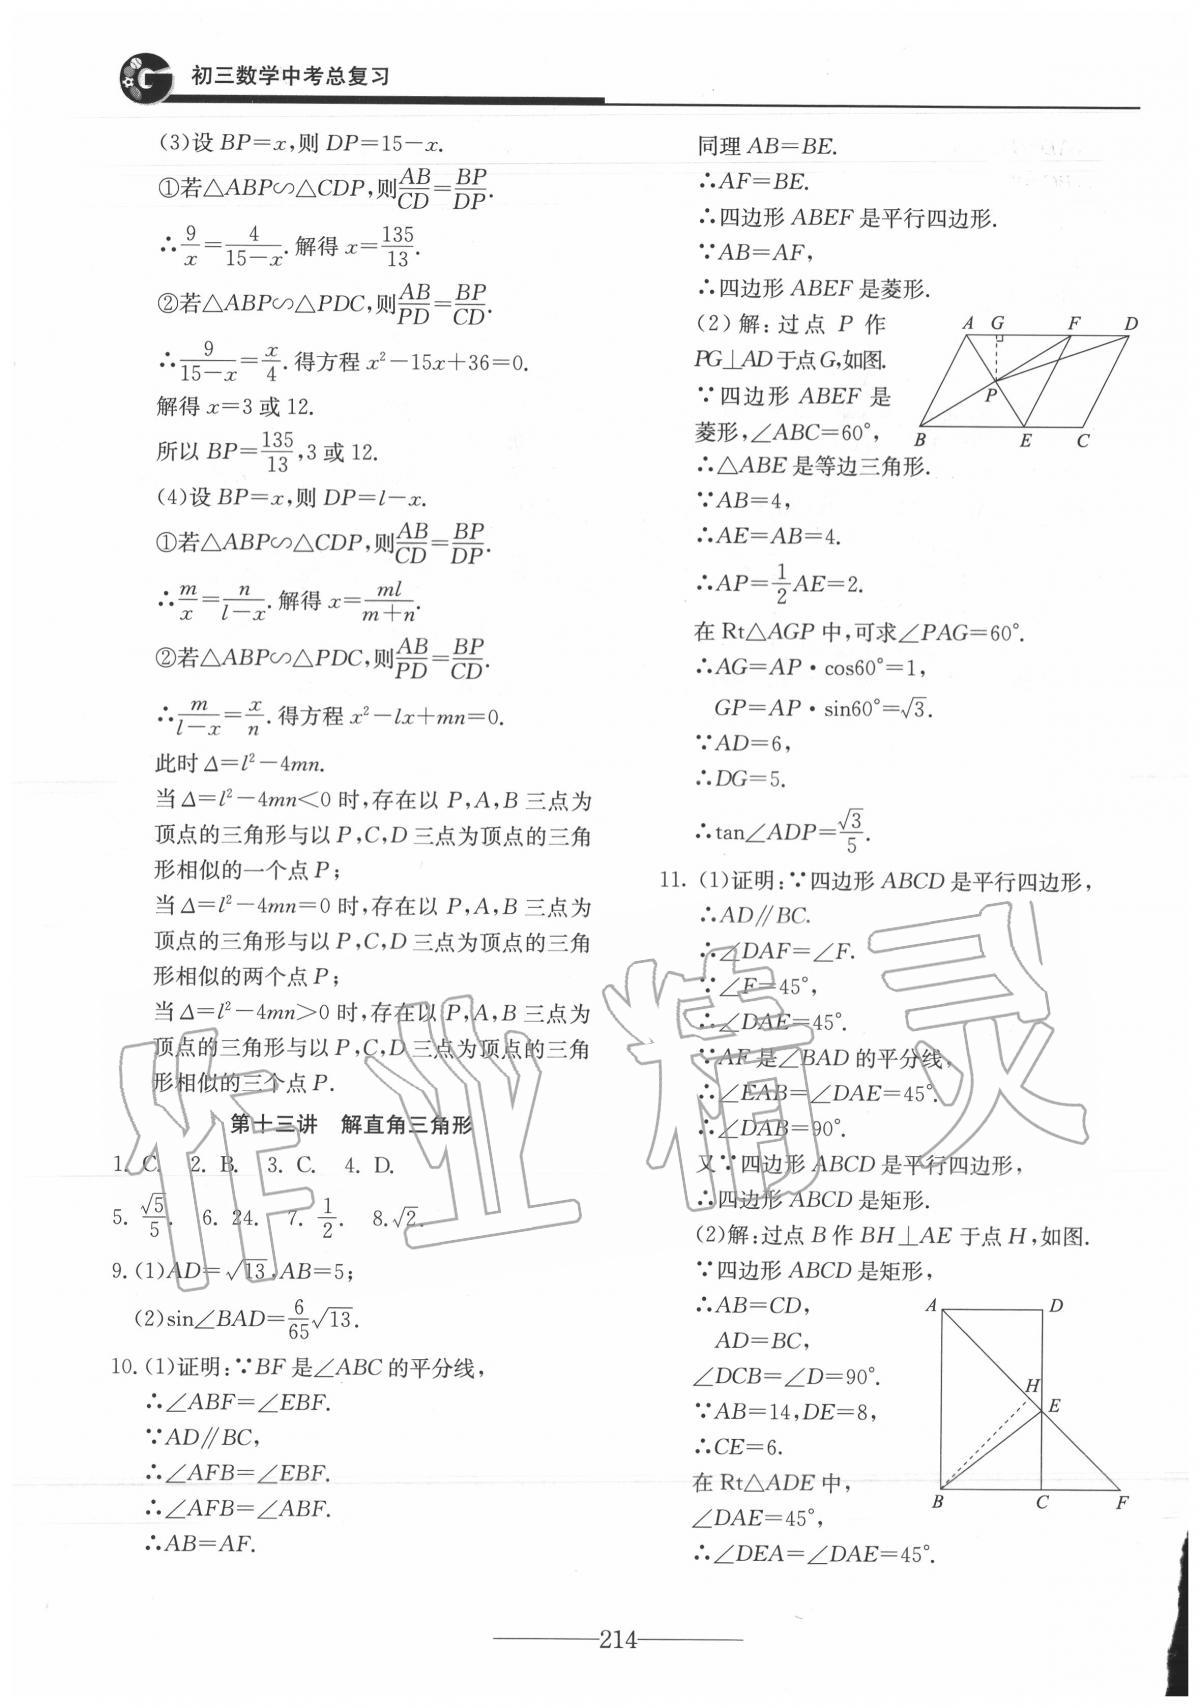 初三数学中考总复习
(3)设 BP=x,则 DP=15-x.
①若△ABP∽△CDP,则AB/CD=BP/DP.
∴9/x=4/(15-x).解得 x=135/13.
②若△ABP∽△PDC,则AB/PD=BP/CD.
∴9/(15-x)=x/4.得方程 x²-15x+36=0.
解得 x=3 或 12.
所以 BP=135/13,3 或 12.
(4)设 BP=x,则 DP=l-x.
①若△ABP∽△CDP,则AB/CD=BP/DP.
∴m/x=n/(l-x).解得 x=ml/(m+n).
②若△ABP∽△PDC,则AB/PD=BP/CD.
∴m/(l-x)=x/n.得方程 x²-lx+mn=0.
此时 Δ=l²-4mn.
当 Δ=l²-4mn<0 时,存在以 P,A,B 三点为
顶点的三角形与以 P,C,D 三点为顶点的三角
形相似的一个点 P;
当 Δ=l²-4mn=0 时,存在以 P,A,B 三点为
顶点的三角形与以 P,C,D 三点为顶点的三角
形相似的两个点 P;
当 Δ=l²-4mn>0 时,存在以 P,A,B 三点为
顶点的三角形与以 P,C,D 三点为顶点的三角
形相似的三个点 P.
第十三讲 解直角三角形
1. C. 2. B. 3. C. 4. D.
5. √5/5. 6. 24. 7. 1/2. 8. √2.
9. (1)AD=√13,AB=5;
(2)sin∠BAD=6/65√13.
10. (1)证明:∵BF 是∠ABC 的平分线,
∴∠ABF=∠EBF.
∵AD∥BC,
∴∠AFB=∠EBF.
∴∠AFB=∠ABF.
∴AB=AF.
同理 AB=BE.
∴AF=BE.
∴四边形 ABEF 是平行四边形.
∵AB=AF,
∴四边形 ABEF 是菱形.
(2)解:过点 P 作
PG⊥AD 于点 G,如图.
∵四边形 ABEF 是
菱形,∠ABC=60°,
∴△ABE 是等边三角形.
∵AB=4,
∴AE=AB=4.
∴AP=1/2AE=2.
在 Rt△AGP 中,可求∠PAG=60°.
∴AG=AP·cos60°=1,
GP=AP·sin60°=√3.
∵AD=6,
∴DG=5.
∴tan∠ADP=√3/5.
A G F D
P
B E C
11. (1)证明:∵四边形 ABCD 是平行四边形,
∴AD∥BC.
∴∠DAF=∠F.
∵∠F=45°,
∴∠DAE=45°.
∵AF 是∠BAD 的平分线,
∴∠EAB=∠DAE=45°.
∴∠DAB=90°.
又∵四边形 ABCD 是平行四边形,
∴四边形 ABCD 是矩形.
(2)解:过点 B 作 BH⊥AE 于点 H,如图.
∵四边形 ABCD 是矩形,
∴AB=CD,
AD=BC,
∠DCB=∠D=90°.
∵AB=14,DE=8,
∴CE=6.
在 Rt△ADE 中,
∠DAE=45°,
∴∠DEA=∠DAE=45°.
A D
H
E
B C F
作业精灵
214